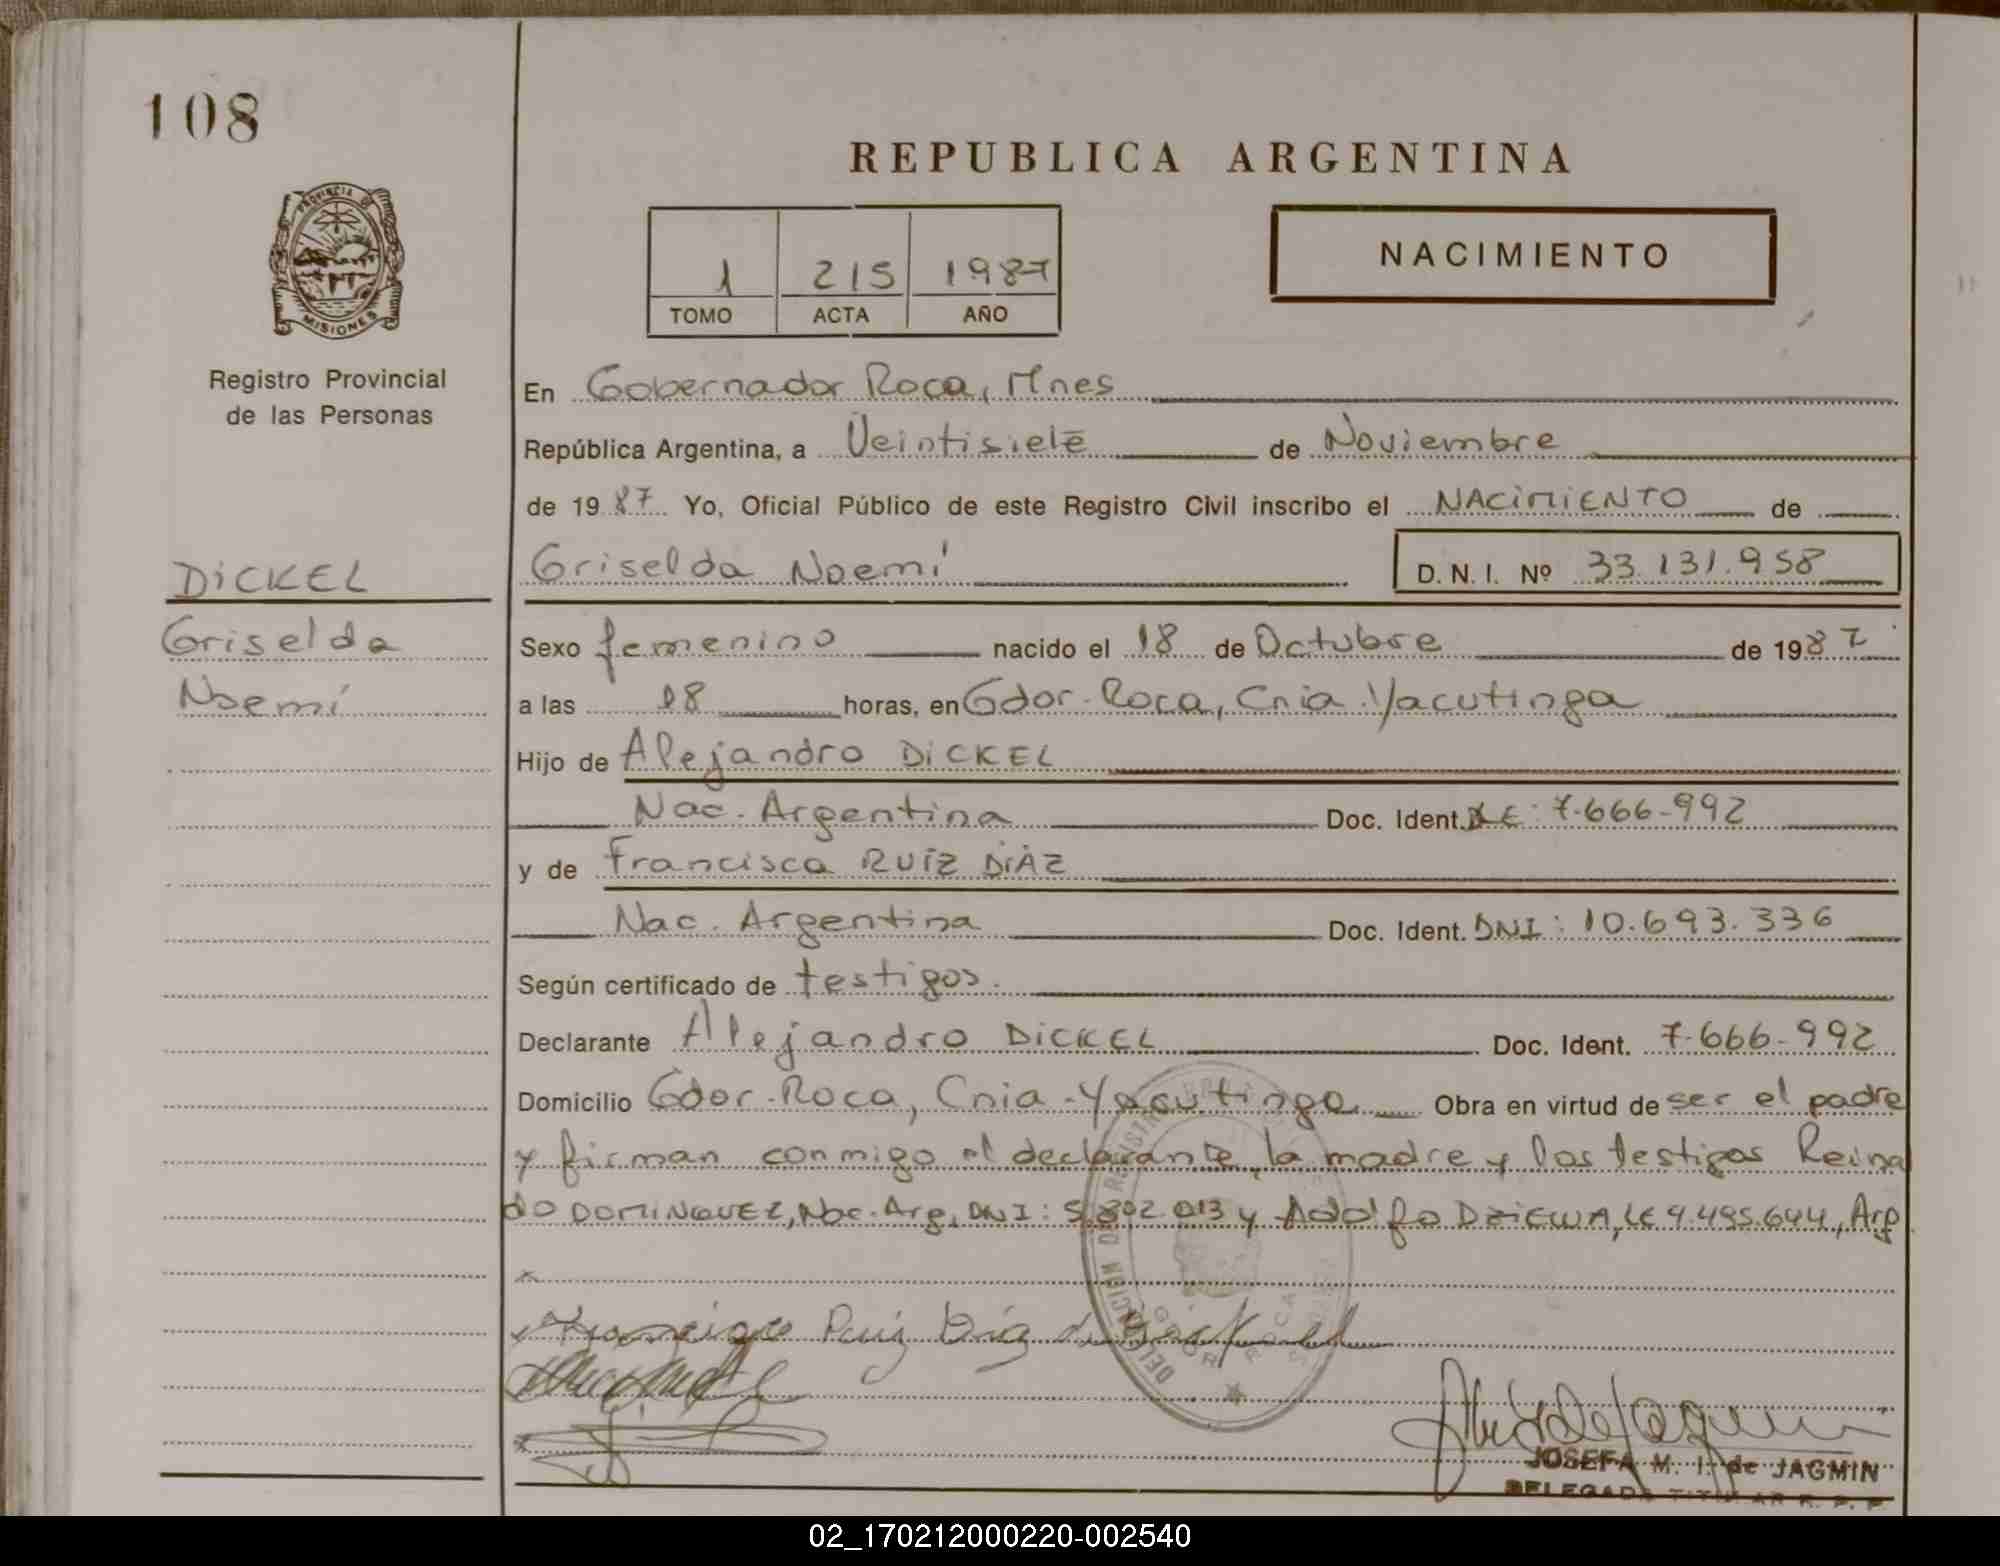 108
REPUBLICA ARGENTINA
PROVINCIA DE
MISIONES
Registro Provincial
de las Personas
1 215 1987
TOMO ACTA AÑO
NACIMIENTO
En Gobernador Roca, Mnes
República Argentina, a Veintisiete de Noviembre
de 1987 Yo, Oficial Público de este Registro Civil inscribo el NACIMIENTO de
DICKEL
Griselda
Noemí
Griselda Noemí D. N. I. Nº 33.131.958
Sexo femenino nacido el 18 de Octubre de 1987
a las 18 horas, en Gdor. Roca, Cnia. Yacutinga
Hijo de Alejandro DICKEL
Nac. Argentina Doc. Ident. LE: 7.666.992
y de Francisca RUIZ DIAZ
Nac. Argentina Doc. Ident. DNI: 10.693.336
Según certificado de testigos.
Declarante Alejandro DICKEL Doc. Ident. 7.666.992
Domicilio Gdor. Roca, Cnia. Yacutinga Obra en virtud de ser el padre
y firman conmigo el declarante, la madre y los testigos Reina
do DOMINGUEZ, Nac. Arg. DNI: 5.802.013 y Adolfo DZIEWA, LE 9.495.644, Arg.
Francisca Ruiz Díaz de Dickel
JOSEFA M. I. de JAGMIN
DELEGADO TITULAR R. P. P.
02_170212000220-002540